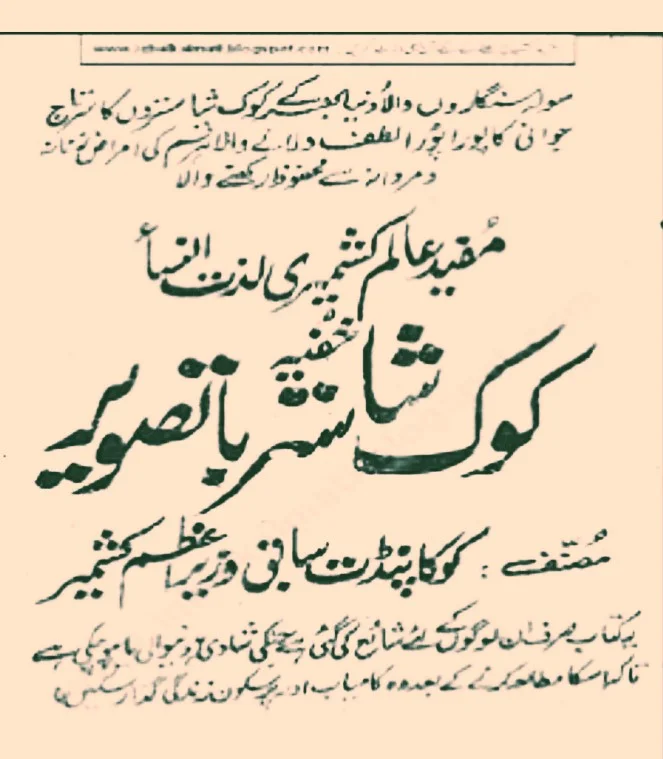 سولہ سنگاروں والا دنیا بھر کے کوک شاستروں کا سرتاج
جوانی کا پورا پورا لطف دلانے والا ہر قسم کی امراض زنانہ
و مردانہ سے محفوظ رکھنے والا
مفید عالم کشمیری لذت النساء
خفیہ
کوک شاستر باتصویر
مُصنّف : کوکا پنڈت سابق وزیر اعظم کشمیر
یہ کتاب صرف ان لوگوں کے لئے شائع کی گئی ہے جنکی شادی ہونیوالی یا ہوچکی ہے
تاکہ اسکا مطالعہ کرنے کے بعد وہ کامیاب اور پرسکون زندگی گذار سکیں